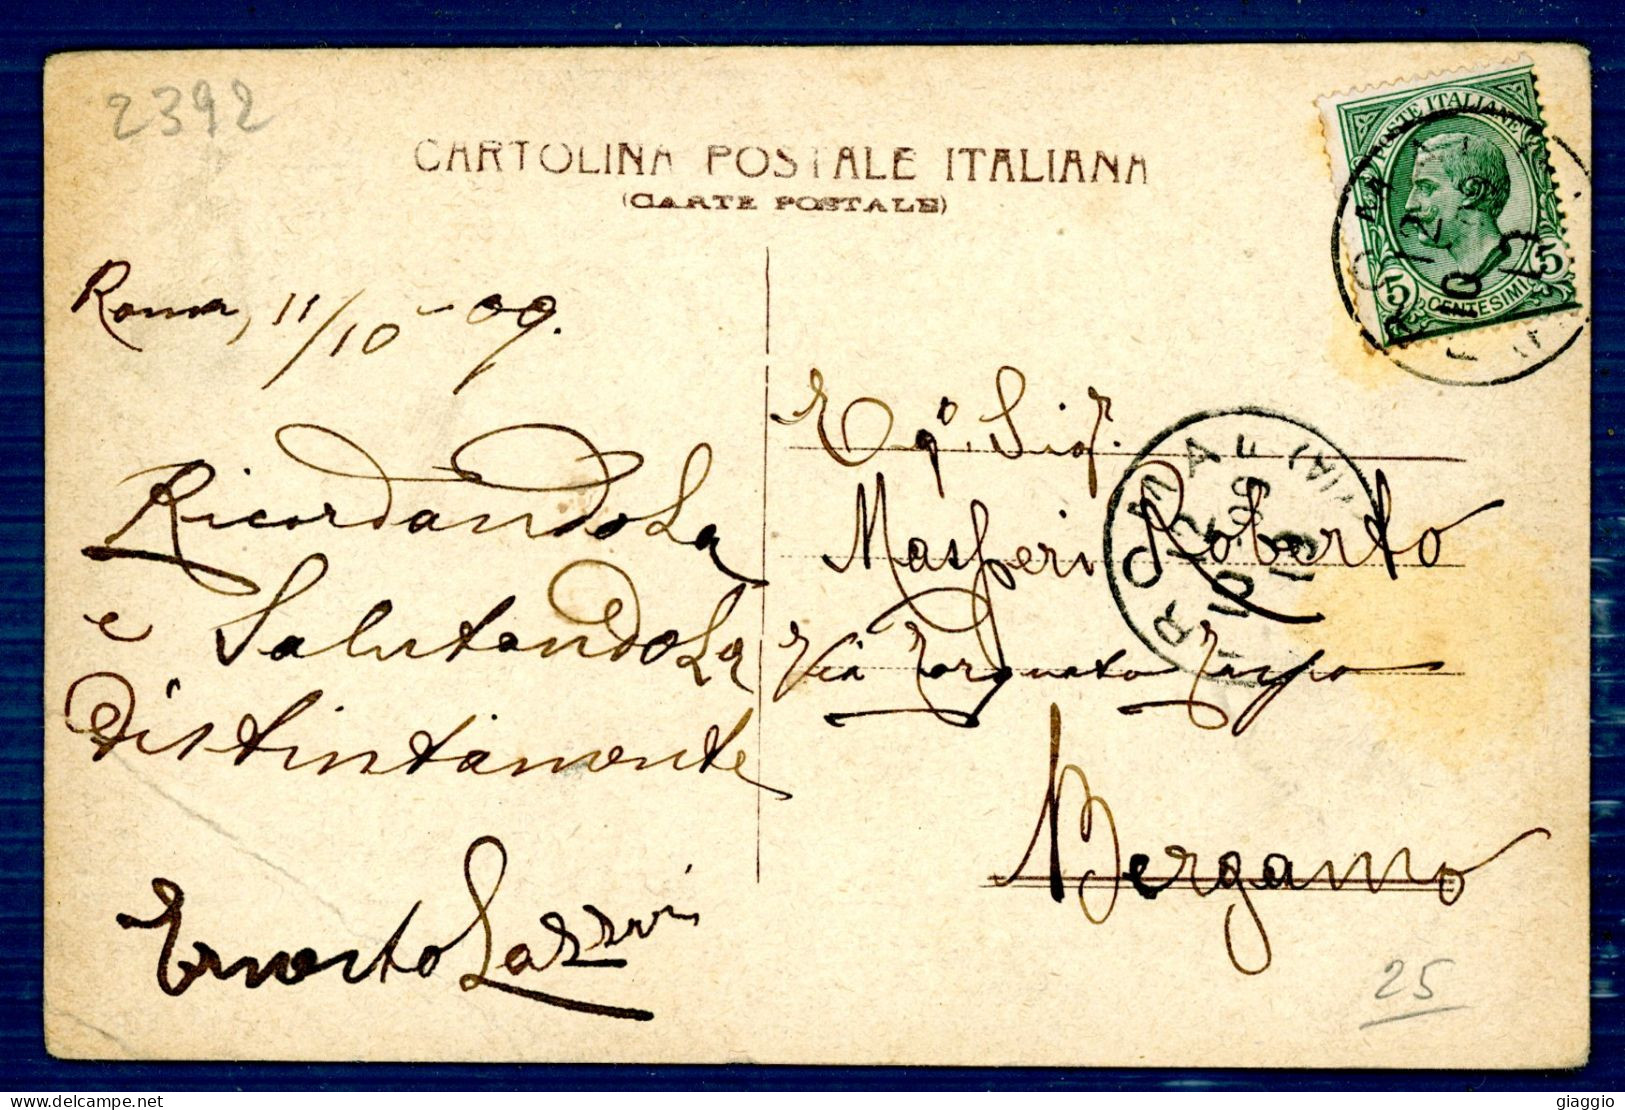 2392
CARTOLINA POSTALE ITALIANA
(CARTE POSTALE)
POSTE ITALIANE
5 5
CENTESIMI
ROMA
Roma, 11/10-09.
RicordandoLa
e SalutandoLa
distintamente
Ernesto Lazzrin
Eg.º Sigr.
Masperi Roberto
Via Torquato Tasso
Bergamo
ROMA
25
giaggio